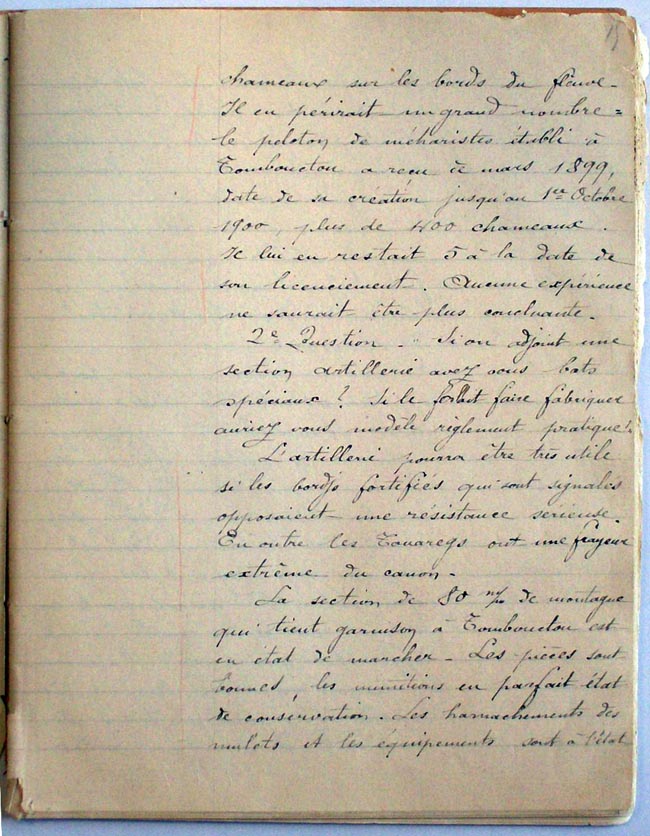 15
chameaux sur les bords du fleuve -
Il en périrait un grand nombre =
le peloton de méharistes établi à
Tombouctou a reçu de mars 1899,
date de sa création jusqu'au 1er Octobre
1900, plus de 400 chameaux.
Il lui en restait 5 à la date de
son licenciement. Aucune expérience
ne saurait être plus concluante.
2e Question - " Si on adjoint une
section artillerie avez vous bats
spéciaux ? Si le faire fabriquer
auriez vous modèle règlement pratique ?"
L'artillerie pourra être très utile
si les bordjs fortifiés qui sont signalés
opposaient une résistance sérieuse.
En outre les Touaregs ont une frayeur
extrême du canon -
La section de 80 m/m de montagne
qui tient garnison à Tombouctou est
en état de marcher - Les pièces sont
bonnes, les munitions en parfait état
de conservation. Les harnachements des
mulets et les équipements sont à l'état